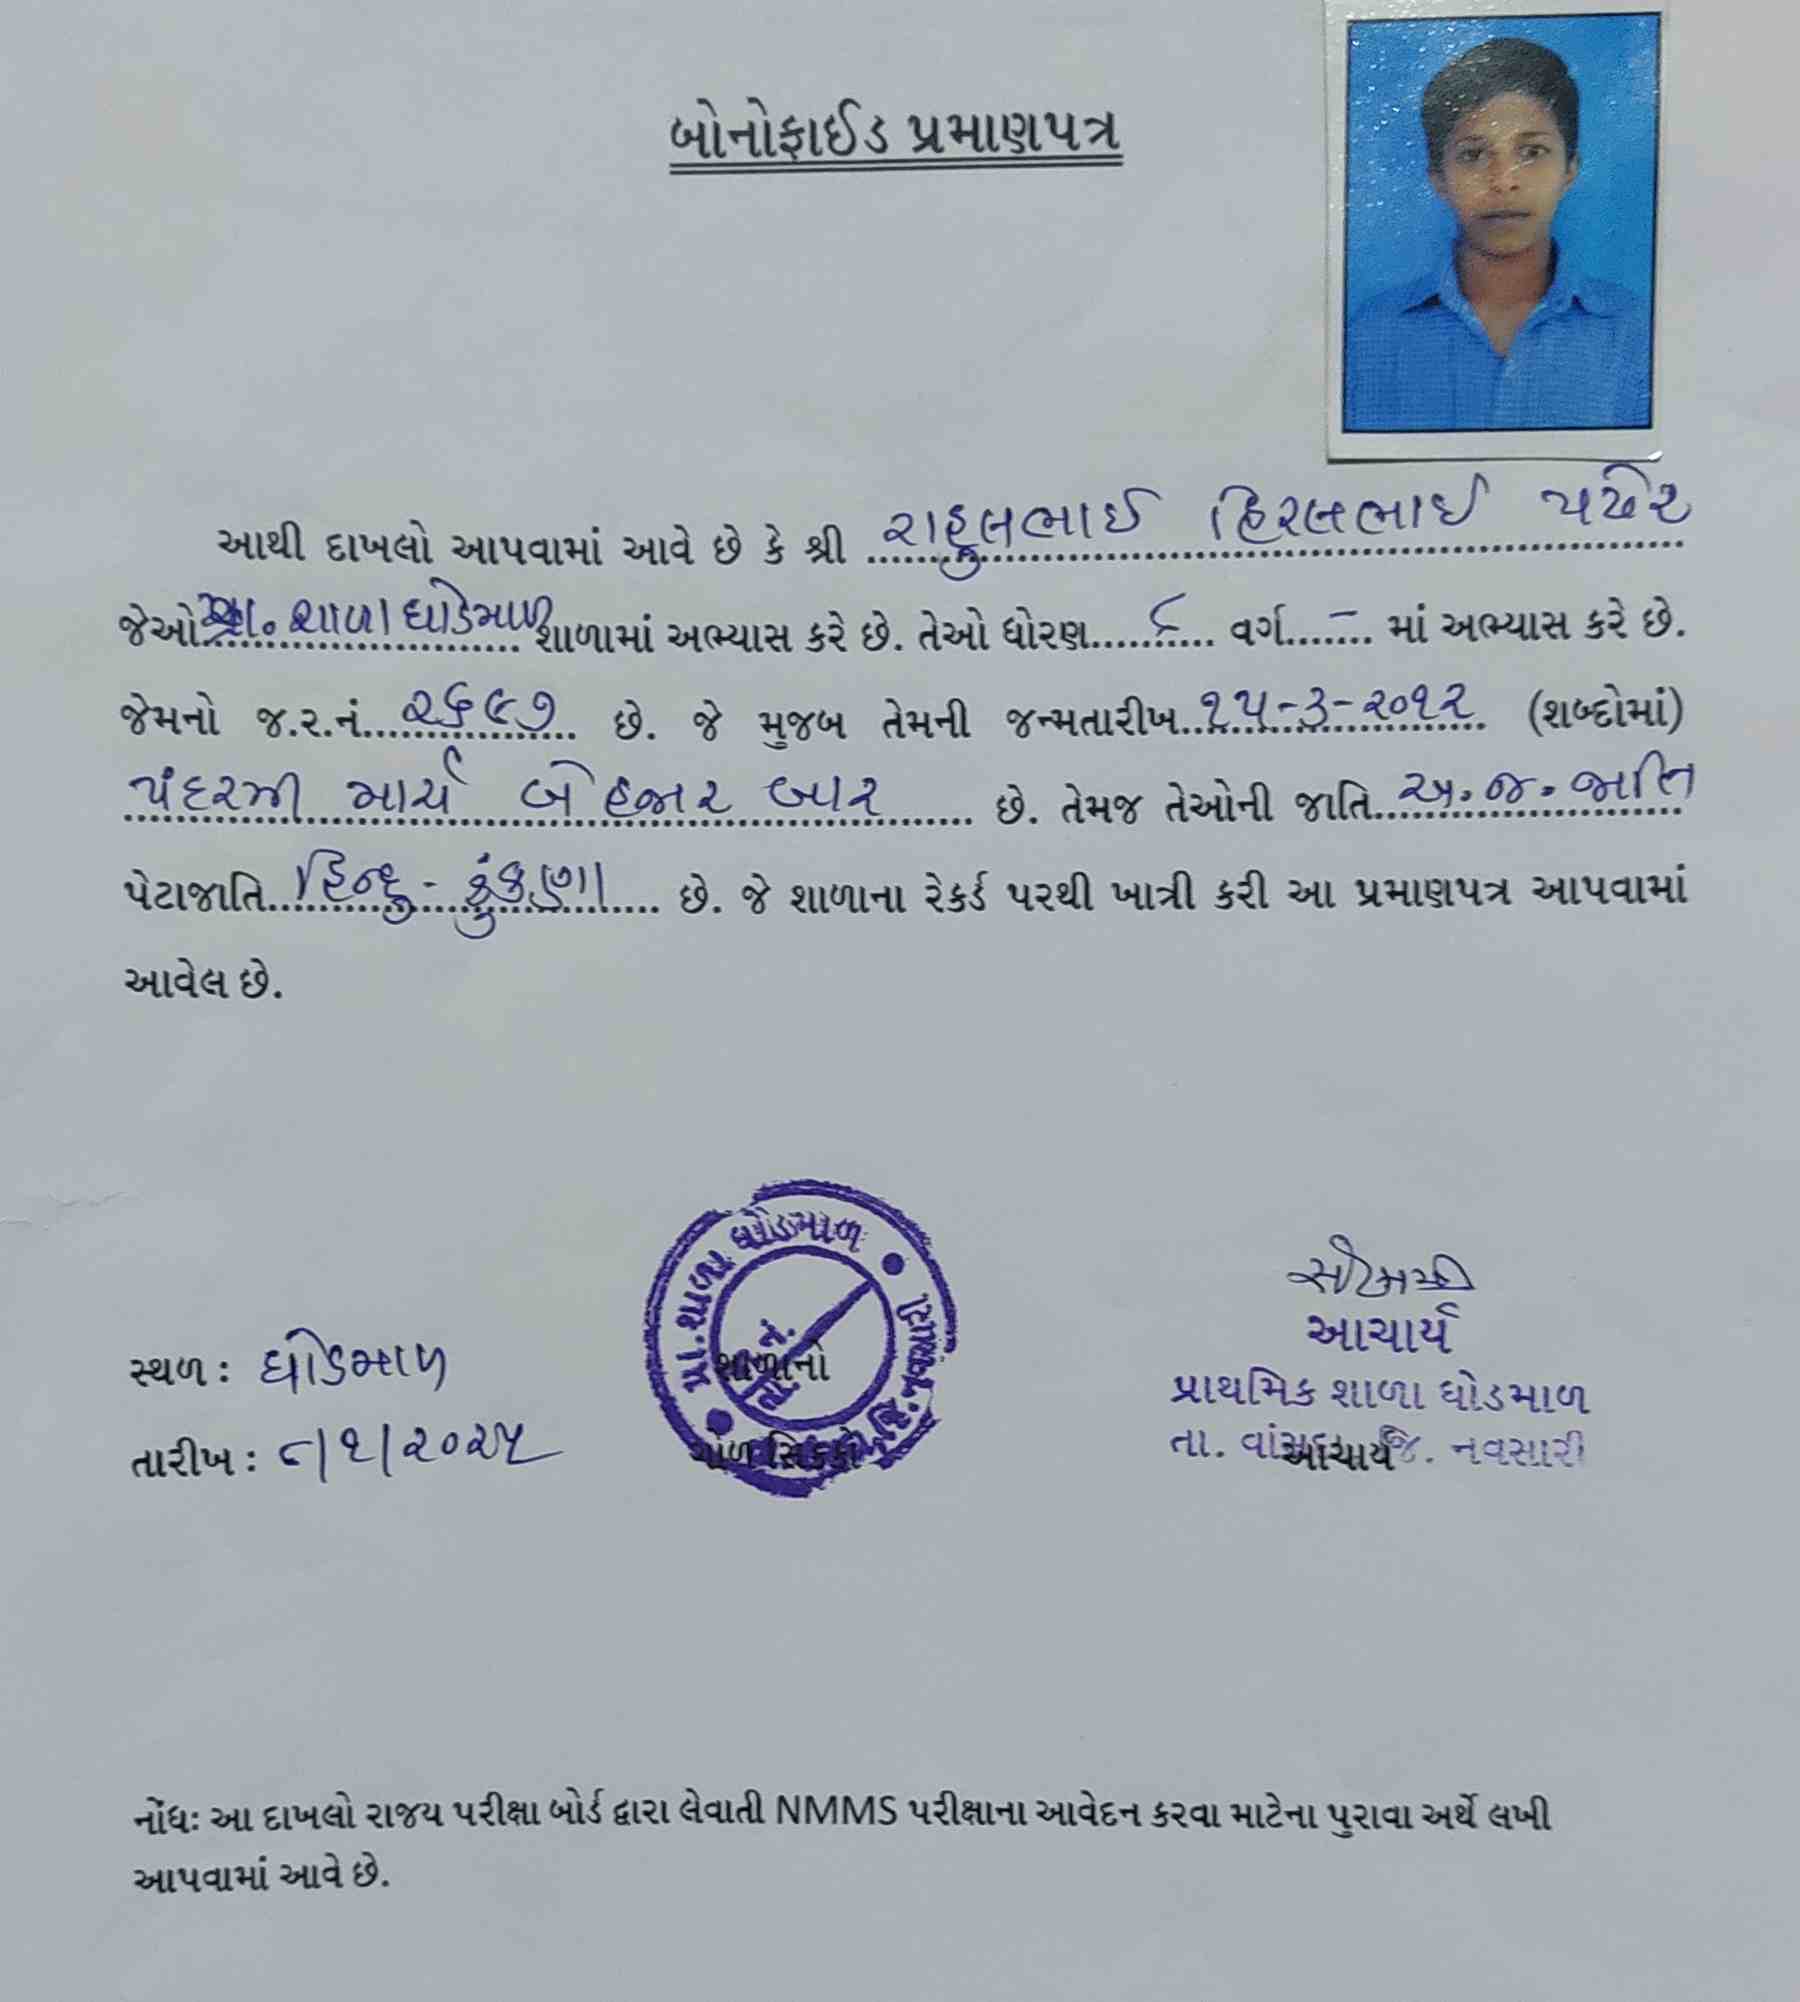 બોનોફાઈડ પ્રમાણપત્ર
આથી દાખલો આપવામાં આવે છે કે શ્રી રાહુલભાઈ હિરલભાઈ પઢેર
જેઓ પ્રા. શાળા ઘોડમાળ શાળામાં અભ્યાસ કરે છે. તેઓ ધોરણ......૮.... વર્ગ...-.... માં અભ્યાસ કરે છે.
જેમનો જ.ર.નં. ૨૬૯૭ છે. જે મુજબ તેમની જન્મતારીખ ૧૫-૩-૨૦૧૨ (શબ્દોમાં)
પંદરમી માર્ચ બે હજાર બાર છે. તેમજ તેઓની જાતિ અ.જ.જાતિ
પેટાજાતિ હિન્દુ - કુંકણા છે. જે શાળાના રેકર્ડ પરથી ખાત્રી કરી આ પ્રમાણપત્ર આપવામાં
આવેલ છે.
પ્રા. શાળા ઘોડમાળ
શાળાનો
ગોળ સિક્કો
સ્થળ : ઘોડમાળ
તારીખ : ૮/૧/૨૦૨૫
આચાર્ય
પ્રાથમિક શાળા ઘોડમાળ
તા. વાંસદા જિ. નવસારી
આચાર્ય
નોંધઃ આ દાખલો રાજ્ય પરીક્ષા બોર્ડ દ્વારા લેવાતી NMMS પરીક્ષાના આવેદન કરવા માટેના પુરાવા અર્થે લખી
આપવામાં આવે છે.